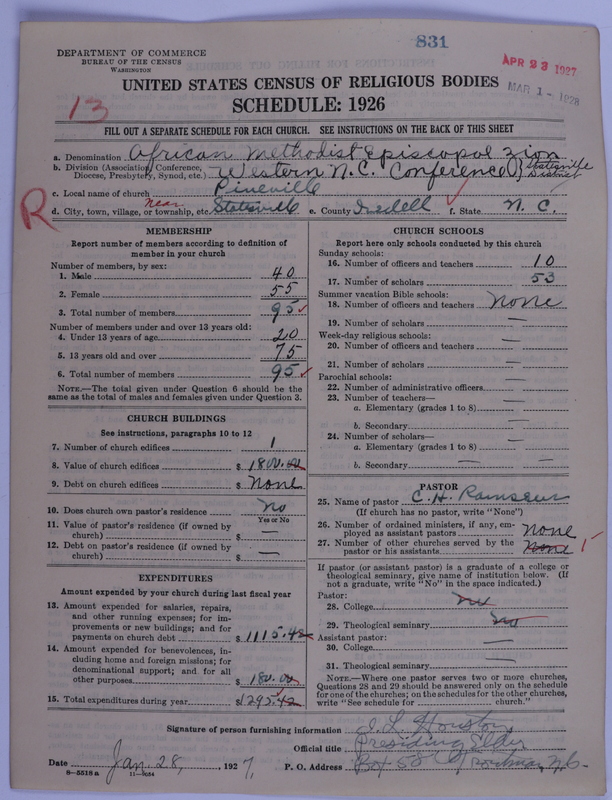 831
DEPARTMENT OF COMMERCE
BUREAU OF THE CENSUS
WASHINGTON
APR 23 1927
MAR 1 - 1928
UNITED STATES CENSUS OF RELIGIOUS BODIES
13
SCHEDULE: 1926
FILL OUT A SEPARATE SCHEDULE FOR EACH CHURCH. SEE INSTRUCTIONS ON THE BACK OF THIS SHEET
a. Denomination African Methodist Episcopal Zion
b. Division (Association, Conference, Diocese, Presbytery, Synod, etc.) Western N.C. Conference } Statesville District
c. Local name of church Pineville
R d. City, town, village, or township, etc. near Statesville e. County Iredell f. State N. C.
MEMBERSHIP
Report number of members according to definition of member in your church
Number of members, by sex:
1. Male 40
2. Female 55
3. Total number of members 95
Number of members under and over 13 years old:
4. Under 13 years of age 20
5. 13 years old and over 75
6. Total number of members 95
NOTE.—The total given under Question 6 should be the same as the total of males and females given under Question 3.
CHURCH BUILDINGS
See instructions, paragraphs 10 to 12
7. Number of church edifices 1
8. Value of church edifices $ 1800.00
9. Debt on church edifices $ None
10. Does church own pastor's residence No
Yes or No
11. Value of pastor's residence (if owned by church) $ —
12. Debt on pastor's residence (if owned by church) $ —
EXPENDITURES
Amount expended by your church during last fiscal year
13. Amount expended for salaries, repairs, and other running expenses; for improvements or new buildings; and for payments on church debt $ 1115.42
14. Amount expended for benevolences, including home and foreign missions; for denominational support; and for all other purposes $ 180.00
15. Total expenditures during year $1295.42
CHURCH SCHOOLS
Report here only schools conducted by this church
Sunday schools:
16. Number of officers and teachers 10
17. Number of scholars 53
Summer vacation Bible schools:
18. Number of officers and teachers none
19. Number of scholars —
Week-day religious schools:
20. Number of officers and teachers —
21. Number of scholars —
Parochial schools:
22. Number of administrative officers —
23. Number of teachers—
a. Elementary (grades 1 to 8) —
b. Secondary —
24. Number of scholars—
a. Elementary (grades 1 to 8) —
b. Secondary —
PASTOR
25. Name of pastor C. H. Ramseur
(If church has no pastor, write "None")
26. Number of ordained ministers, if any, employed as assistant pastors none
27. Number of other churches served by the pastor or his assistants none 1
If pastor (or assistant pastor) is a graduate of a college or theological seminary, give name of institution below. (If not a graduate, write "No" in the space indicated.)
Pastor:
28. College no
29. Theological seminary no
Assistant pastor:
30. College —
31. Theological seminary —
NOTE.—Where one pastor serves two or more churches, Questions 28 and 29 should be answered only on the schedule for one of the churches; on the schedules for the other churches, write "See schedule for ______ church."
Signature of person furnishing information J. L. Houston
Official title Presiding Elder
Date Jan. 28, 1927, P. O. Address Box 52 Troutman, N.C.
8—5518 a 11—9034